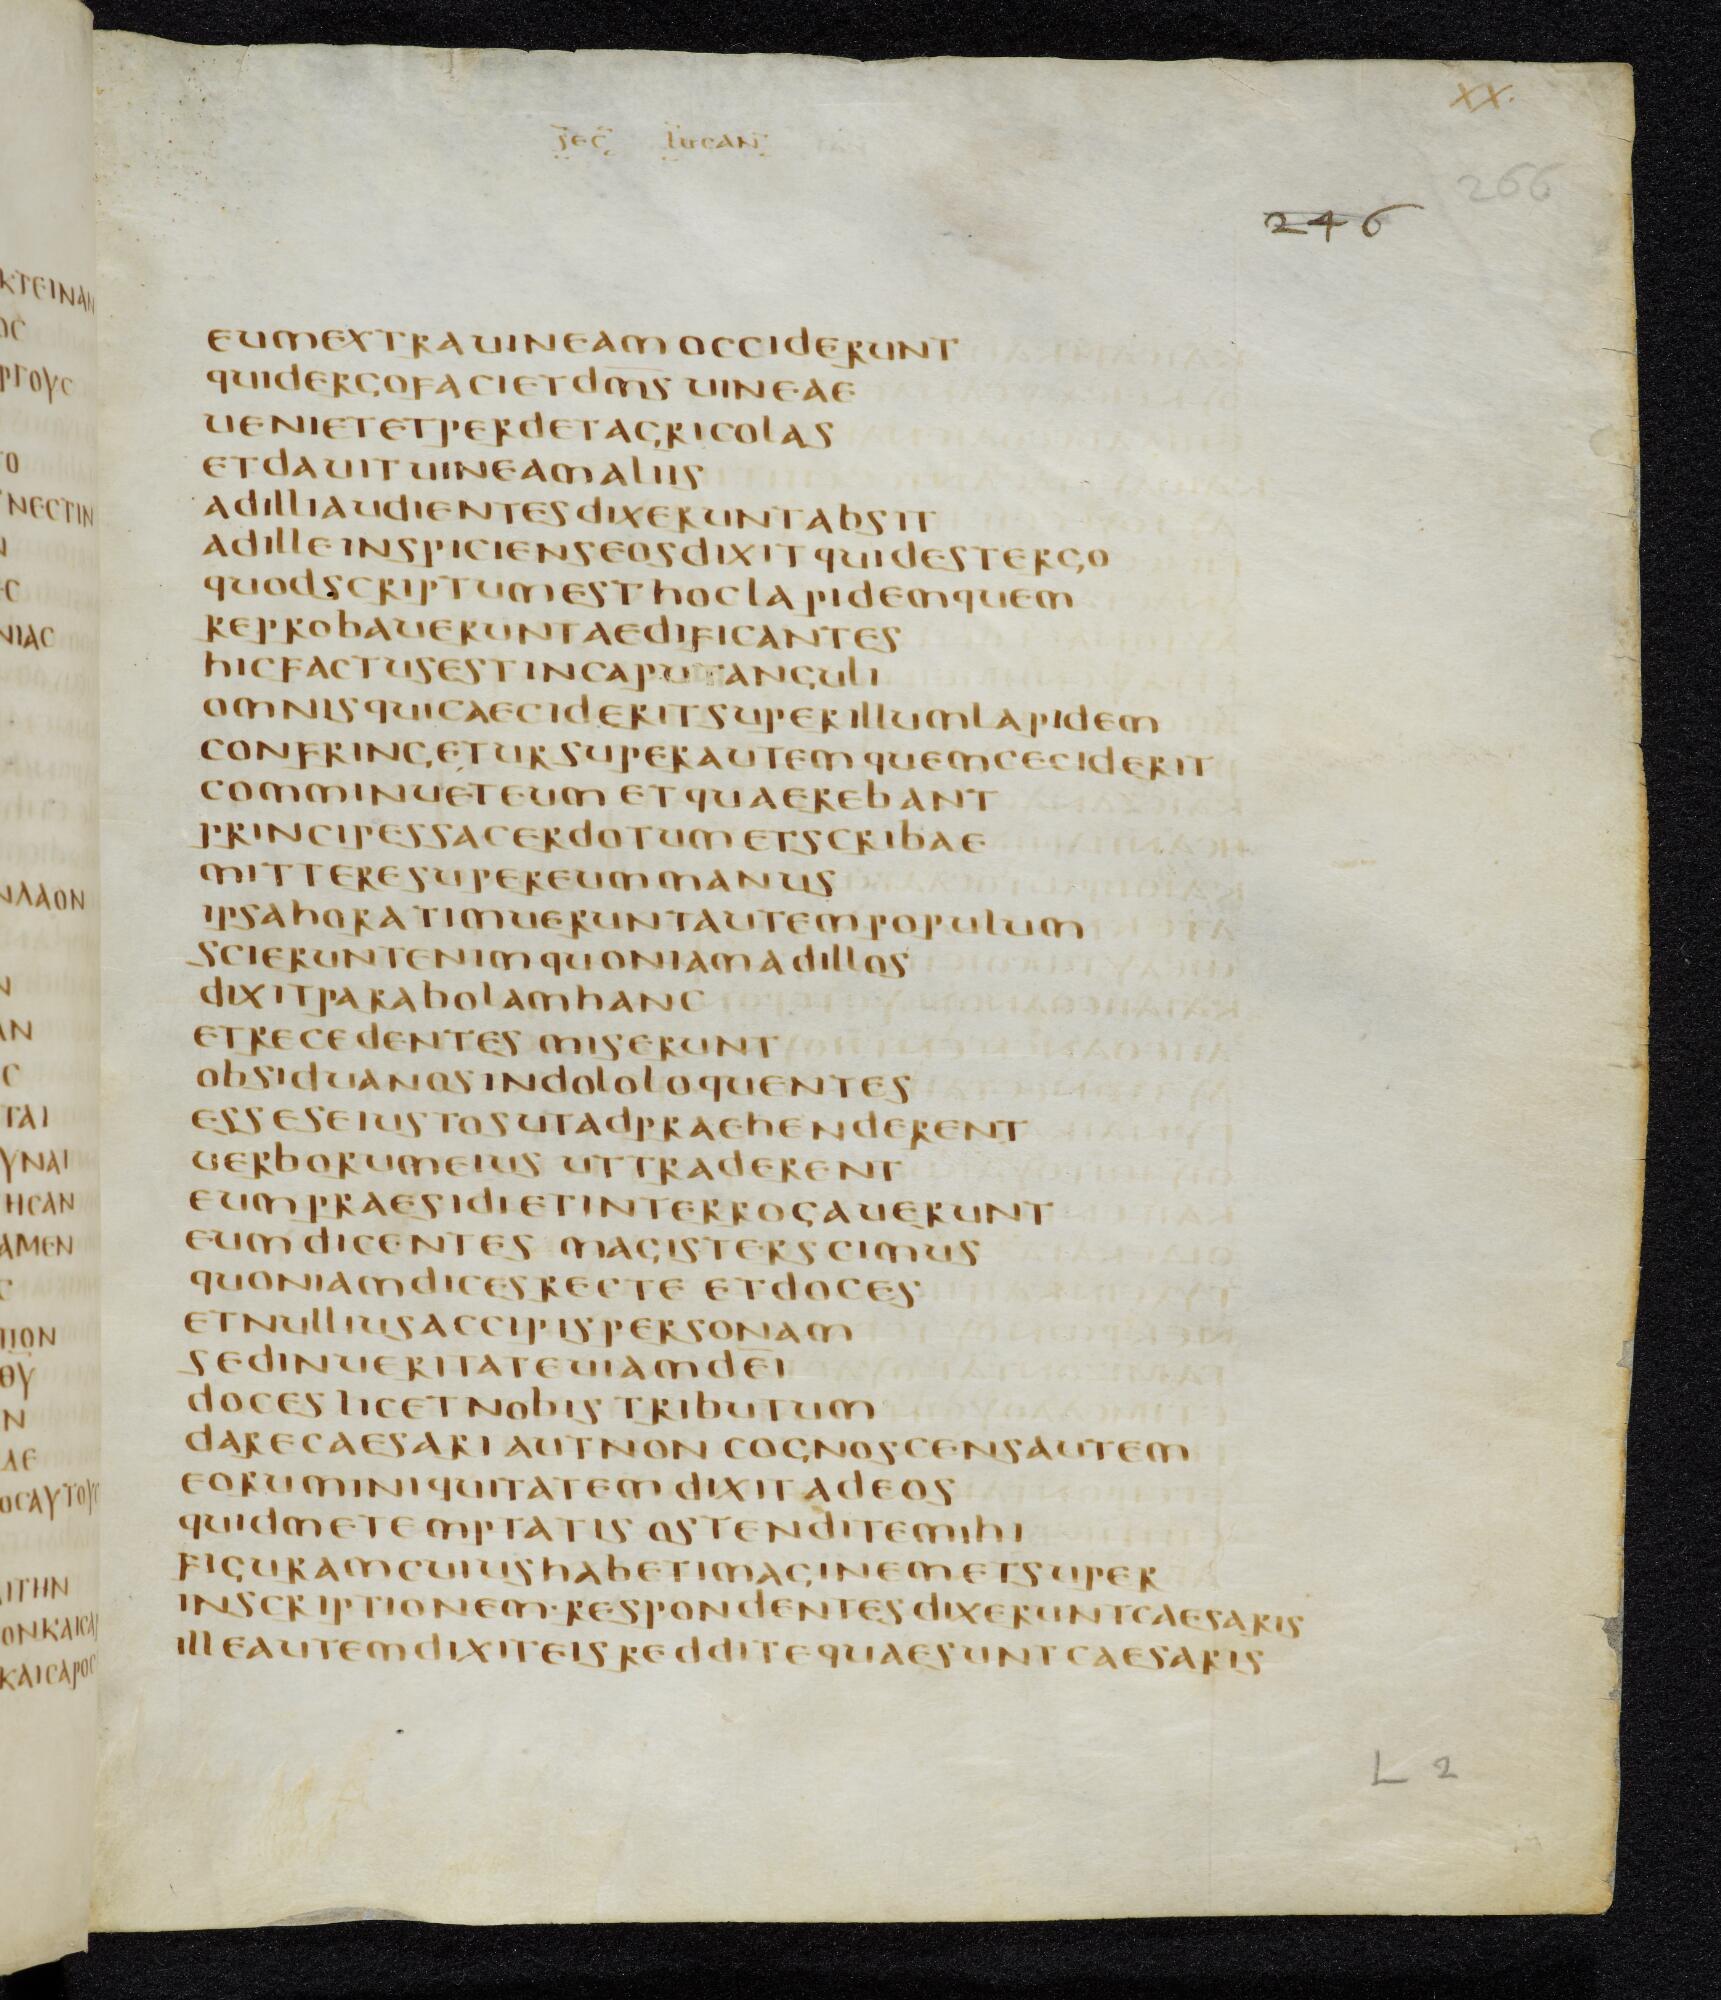 XX.
sec̅ lucan̅
266
246
EUMEXTRAUINEAM OCCIDERUNT
QUIDERGOFACIETDM̅S UINEAE
UENIETETPERDETAGRICOLAS
ETDAUITUINEAMALIIS
ADILLIAUDIENTESDIXERUNTABSIT
ADILLEINSPICIENSEOSDIXITQUIDESTERGO
QUODSCRIPTUMEST HOCLAPIDEMQUEM
REPROBAUERUNTAEDIFICANTES
HICFACTUSESTINCAPUTANGULI
OMNISQUICAECIDERITSUPERILLUMLAPIDEM
CONFRINGETURSUPERAUTEMQUEMCECIDERIT
COMMINUETEUM ETQUAEREBANT
PRINCIPESSACERDOTUMETSCRIBAE
MITTERESUPEREUMMANUS
IPSAHORATIMUERUNTAUTEMPOPULUM
SCIERUNTENIMQUONIAMADILLOS
DIXITPARABOLAMHANC
ETRECEDENTES MISERUNT
OBSIDUANOSINDOLOLOQUENTES
ESSESEIUSTOSUTADPRAEHENDERENT
UERBORUMEIUS UTTRADERENT
EUMPRAESIDIETINTERROGAUERUNT
EUMDICENTES MAGISTERSCIMUS
QUONIAMDICESRECTE ETDOCES
ETNULLIUSACCIPISPERSONAM
SEDINUERITATEUIAMDE̅I
DOCES LICETNOBISTRIBUTUM
DARECAESARI AUTNON COGNOSCENSAUTEM
EORUMINIQUITATEM DIXITADEOS
QUIDMETEMPTATIS OSTENDITEMIHI
FIGURAMCUIUSHABETIMAGINEMETSUPER
INSCRIPTIONEM·RESPONDENTESDIXERUNTCAESARIS
ILLEAUTEMDIXITEISREDDITEQUAESUNTCAESARIS
L 2